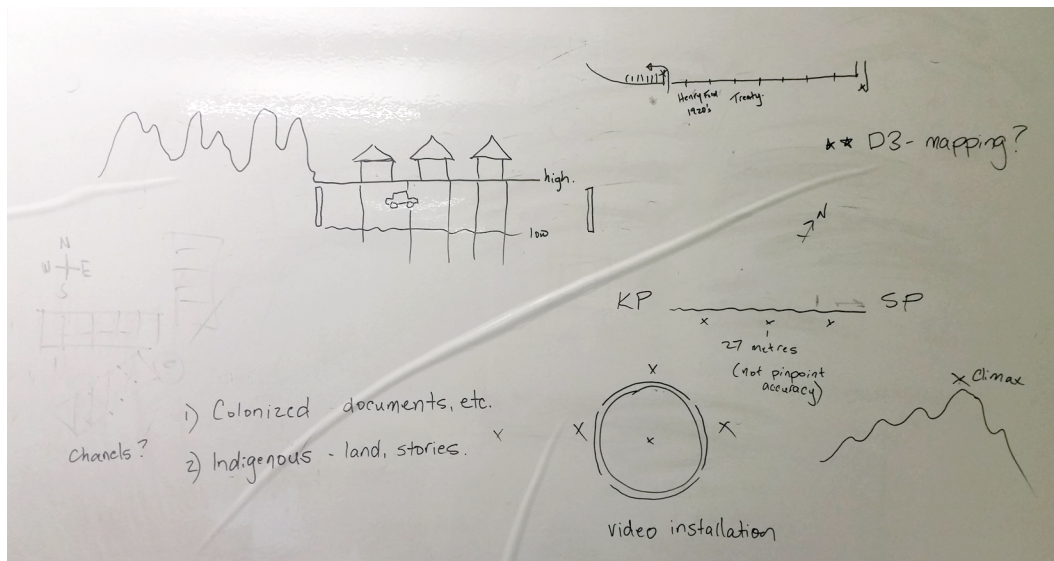 Henry Ford
1920's
Treaty.
** D3 - mapping?
high.
low
N
N
W E
S
KP
SP
27 metres
(not pinpoint
accuracy)
X Climax
1) Colonized - documents, etc.
2) Indigenous - land, stories.
Chanels?
video installation